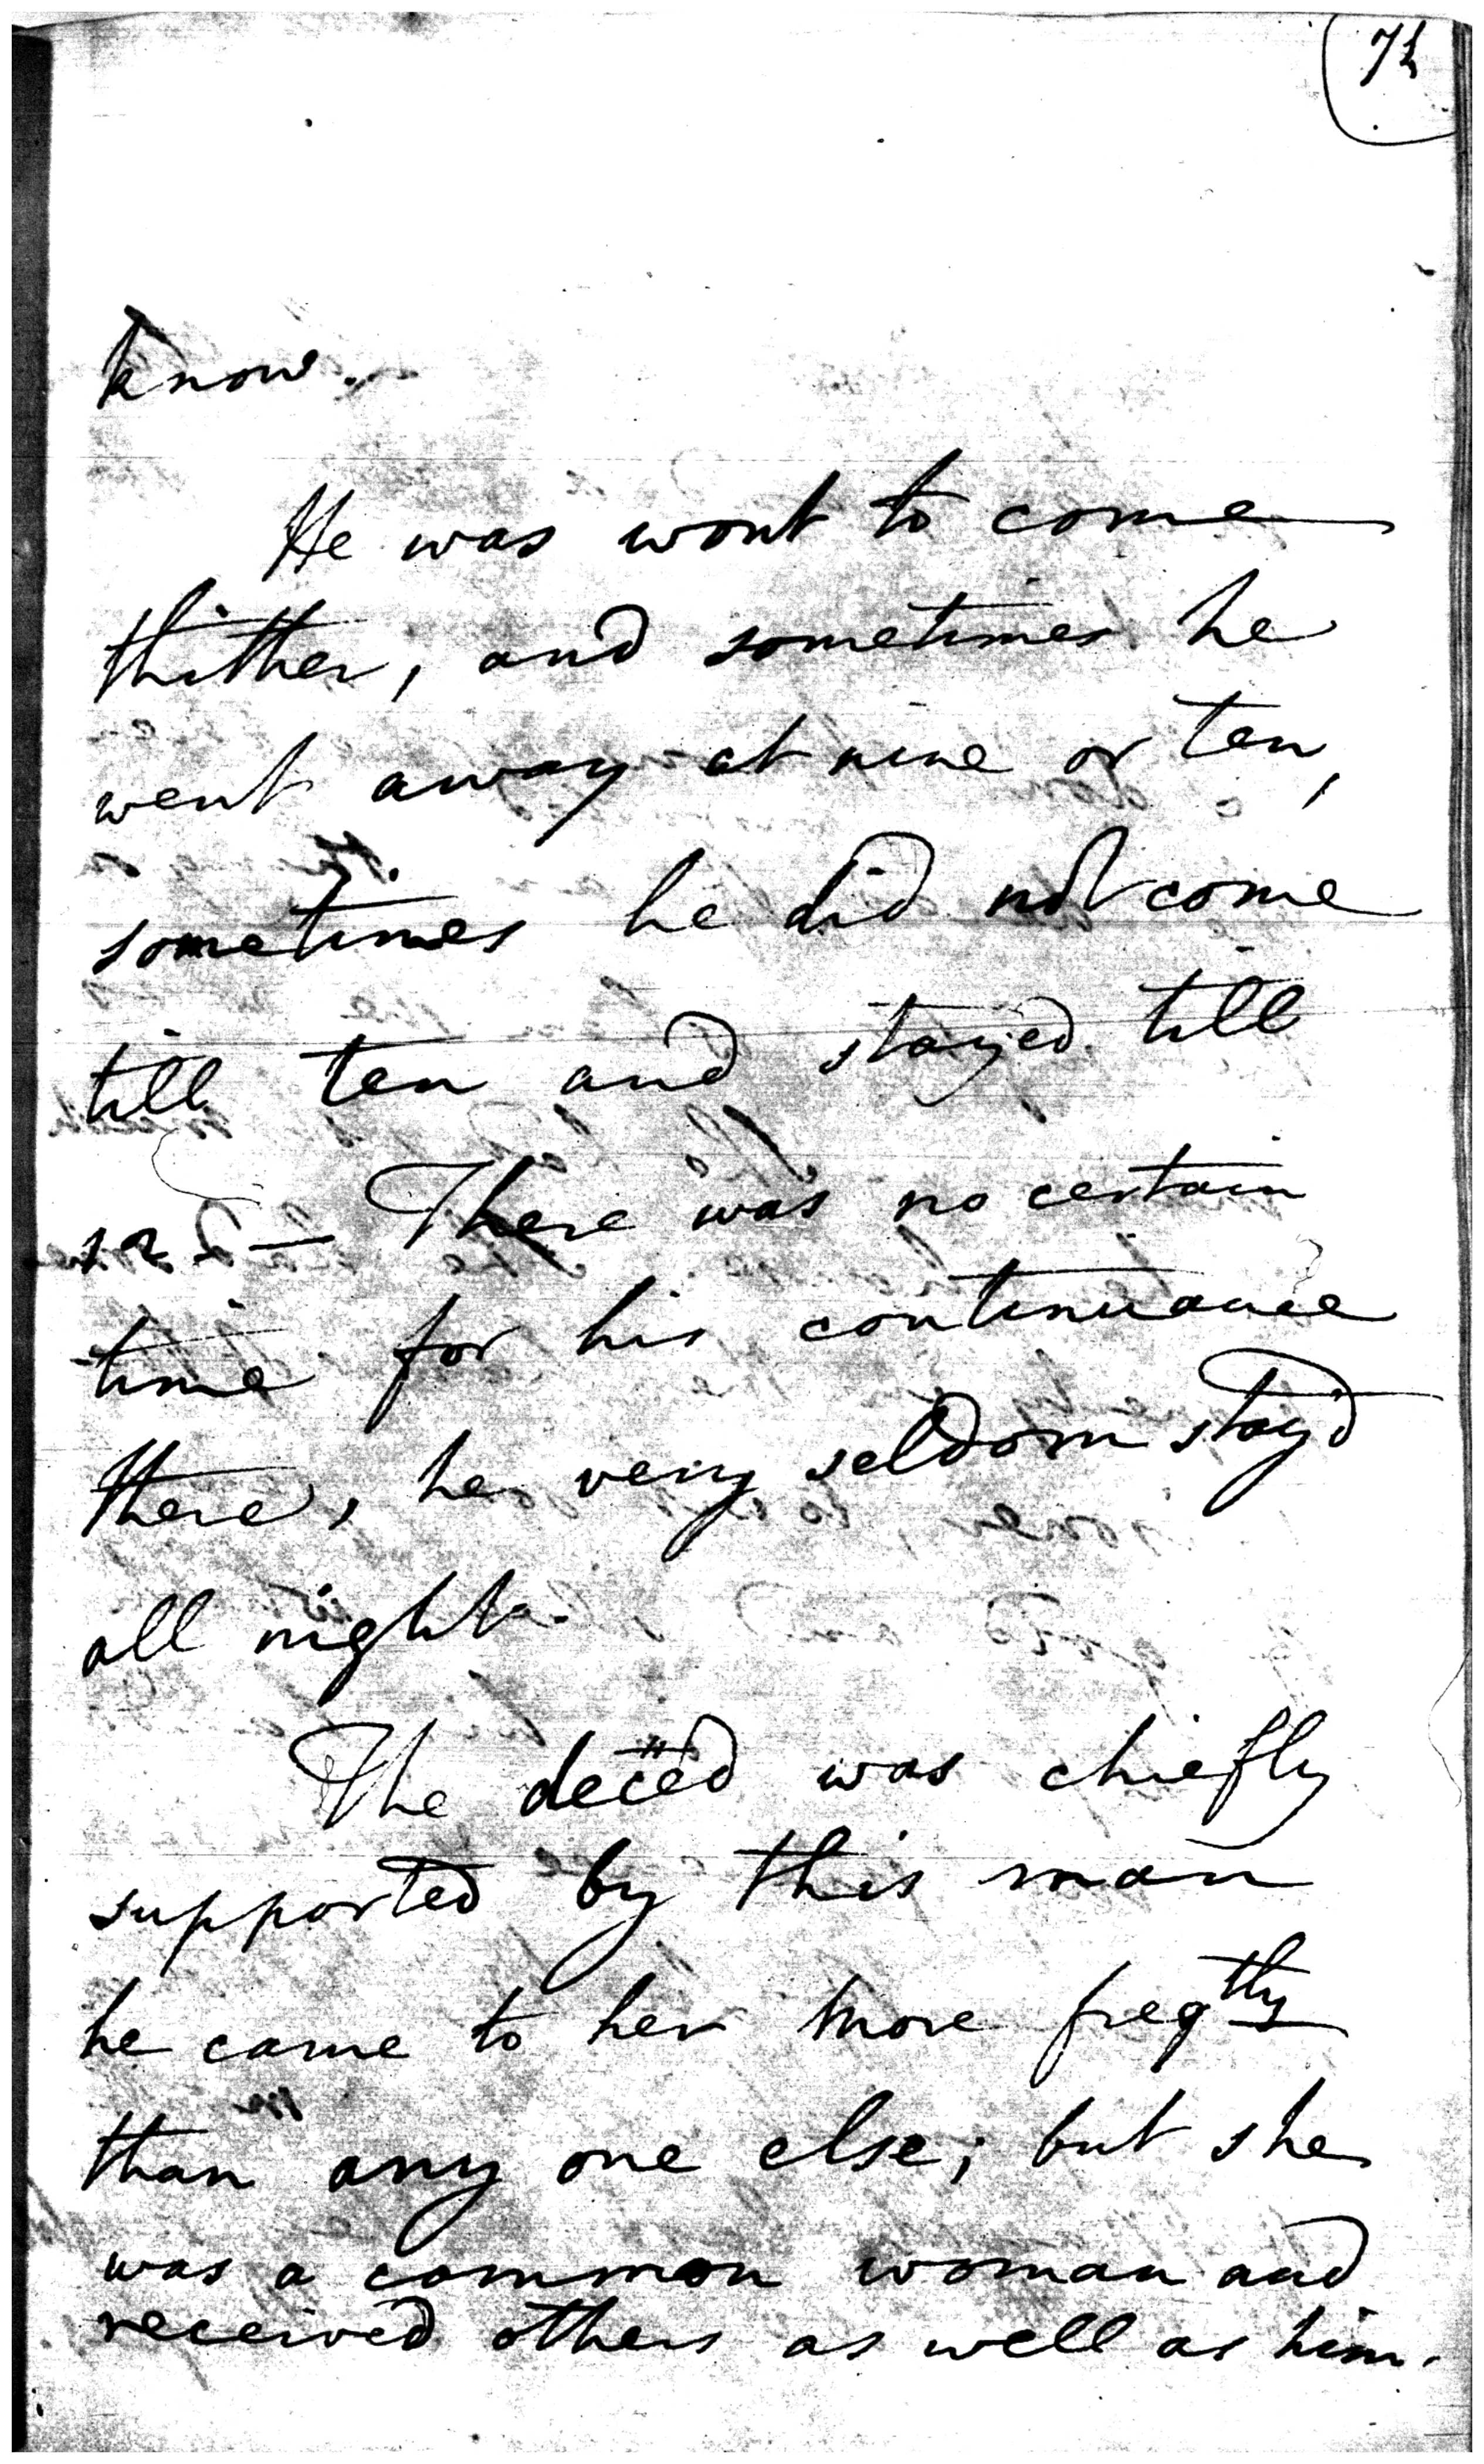 72
know.
He was wont to come
thither, and sometimes he
went away at nine or ten,
sometimes he did not come
till ten and stayed till
12 — There was no certain
time for his continuance
there, he very seldom stay'd
all night.
The deced was chiefly
supported by this man
he came to her more freqtly
than any one else; but she
was a common woman and
received others as well as him.